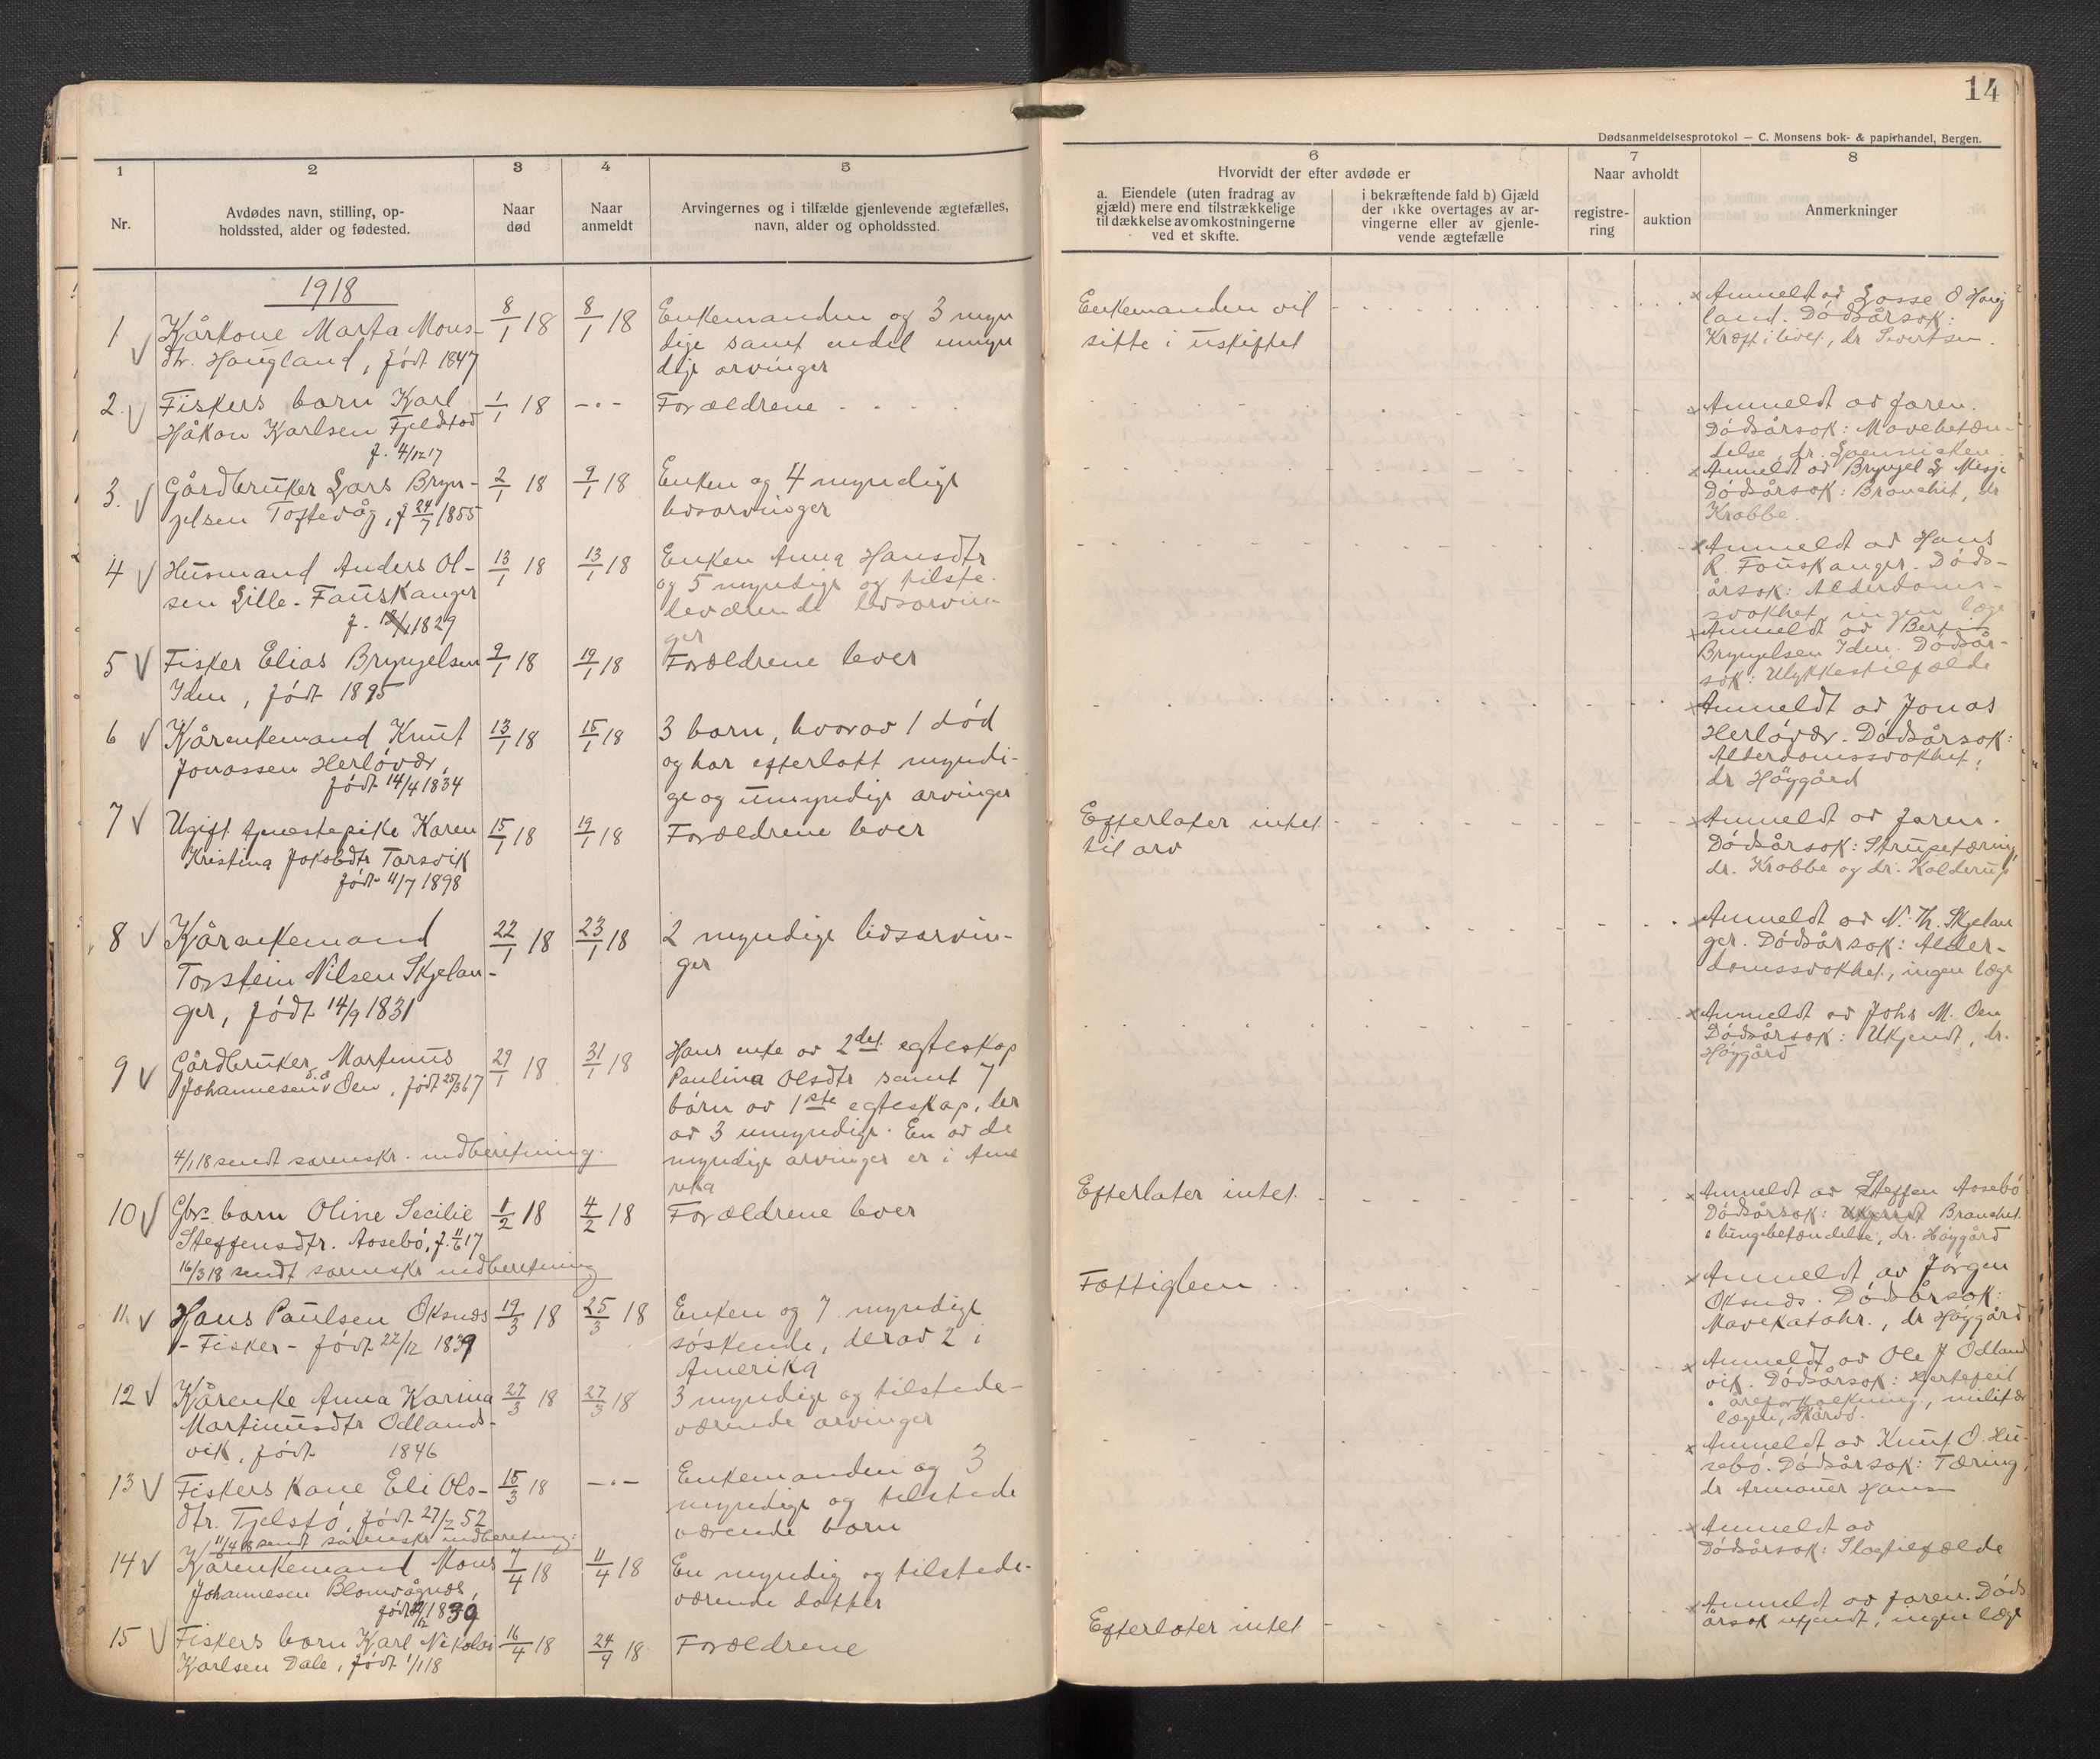 14
Dødsanmeldelsesprotokol — C. Monsens bok- & papirhandel, Bergen.
1
Nr.
2
Avdødes navn, stilling, op-
holdssted, alder og fødested.
3
Naar
død
4
Naar
anmeldt
5
Arvingernes og i tilfælde gjenlevende ægtefælles,
navn, alder og opholdssted.
6
Hvorvidt der efter avdøde er
a. Eiendele (uten fradrag av
gjæld) mere end tilstrækkelige
til dækkelse av omkostningerne
ved et skifte.
i bekræftende fald b) Gjæld
der ikke overtages av ar-
vingerne eller av gjenle-
vende ægtefælle
7
Naar avholdt
registre-
ring
auktion
8
Anmerkninger
1918
1
Kårkone Marta Mons-
dtr. Haugland, født 1847
8/1 18
8/1 18
Enkemanden og 3 myn
dige samt endel umyn
dige arvinger
Enkemanden vil
sitte i uskiftet
Anmeldt av Lasse O Haug
land. Dødsårsok:
Kræft i livet, dr Sivertsen.
2.
Fiskers barn Karl
Håkon Karlsen Fjeldstad
f. 4/12 17
1/1 18
-.-
Forældrene
Anmeldt av faren.
Dødsårsok: Mavebetæn-
delse, dr.
3.
Gårdbruker Lars Bryn-
jelsen Toftevåg, f 24/7 1855
2/1 18
9/1 18
Enken og 4 myndige
livsarvinger
Anmeldt av Brynjel L Misje
Dødsårsok: Bronchit, dr
Krabbe.
4
Husmand Anders Ol-
sen Lille-Fauskanger
f. 1829
13/1 18
13/1 18
Enken Anna Hansdtr
og 5 myndige og tilste-
deværende livsarvin-
ger
Anmeldt av Hans
R. Fauskanger. Døds-
årsok: Alderdoms-
svakhet, ingen læge
5
Fisker Elias Brynjelsen
Iden, født 1895
9/1 18
19/1 18
Forældrene lever
Anmeldt av Bertin
Brynjelsen Iden. Dødsår-
sok: Ulykkestilfælde
6
Kårenkemand Knut
Jonassen Herløvær,
født 14/4 1834
13/1 18
15/1 18
3 barn, hvorav 1 død
og har efterlatt myndi-
ge og umyndige arvinger
Anmeldt av Jonas
Herløvær. Dødsårsok:
Alderdomssvakhet,
dr Høygård
7
Ugift tjenestepike Karen
Kristina Jakobdtr Tarsvik
født 11/7 1898
15/1 18
19/1 18
Forældrene lever
Efterlater intet
til arv
Anmeldt av faren.
Dødsårsok: Strupetæring,
dr. Krabbe og dr. Kalderup
8
Kårenkemand
Torstein Nilsen Skjelan-
ger, født 14/9 1831
22/1 18
23/1 18
2 myndige livsarvin-
ger
Anmeldt av N. Th. Skjelan
ger. Dødsårsok: Alder-
domssvakhet, ingen læge
9
Gårdbruker Martinus
Johannesen d.å. Oen, født 25/3 67
29/1 18
31/1 18
Hans enke av 2det egteskap
Paulina Olsdtr samt 7
børn av 1ste egteskap, der
av 3 umyndige. En av de
myndige arvinger er i Ame
rika
Anmeldt av Johs M. Oen
Dødsårsok: Ukjendt, dr.
Høygård
4/1 18 sendt sorenskr. indberetning.
10
Gbr. barn Oline Secilie
Steffensdtr. Aosebø, f. 11/6 17
1/2 18
4/2 18
Forældrene lever
Efterlater intet
Anmeldt av Steffen Aosebø
Dødsårsok: Bronchit.
o lungebetændelse, dr. Høygård
16/3 18 sendt sorenskr indberetning
11.
Hans Paulsen Oksnæs
- Fisker - født 22/12 1839
19/3 18
25/3 18
Enken og 7 myndige
søskende, derav 2 i
Amerika
Fattiglem
Anmeldt av Jørgen
Oksnæs. Dødsårsok:
Mavekatahr., dr Høygård
12
Kårenke Anna Karina
Martinusdtr Odlands-
vik, født 1846
27/3 18
27/3 18
3 myndige og tilstede-
værende arvinger
Anmeldt av Ole J Odland
vik. Dødsårsok: Hjertefeil
o åreforkalkning, militær
lægen,
13
Fiskers kone Eli Ols-
dtr. Tjelstø, født 27/2 52
15/3 18
-.-
Enkemanden og 3
myndige og tilstede
værende barn
Anmeldt av Knut O. Hu-
sebø. Dødsårsok: Tæring,
dr Armauer Hansen
11/4 18 sendt sorenskr indberetning:
14
Kårenkemand Mons
Johannesen Blomvågnes,
7/4 18
11/4 18
En myndig og tilstede-
værende datter
Anmeldt av
Dødsårsok: Slagtilfælde
15
Fiskers barn Karl Nikolai
Karlsen Dale, født 1/1 18
16/4 18
24/4 18
Forældrene
Efterlater intet
Anmeldt av faren. Døds
årsok ukjendt, ingen læge